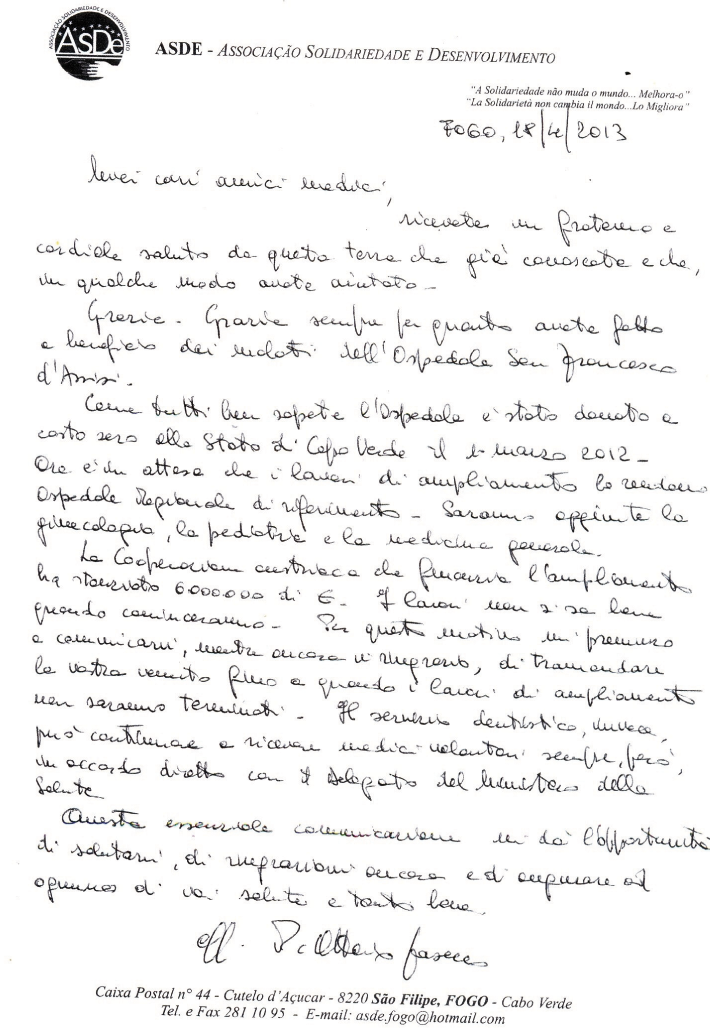 ASSOCIAÇÃO SOLIDARIEDADE E DESENVOLVIMENTO
ASDe
ASDE - ASSOCIAÇÃO SOLIDARIEDADE E DESENVOLVIMENTO
"A Solidariedade não muda o mundo... Melhora-o"
"La Solidarietà non cambia il mondo...Lo Migliora"
FOGO, 18/4/2013
Miei cari amici medici,
ricevete un fraterno e
cordiale saluto da questa terra che già conoscete e che,
in qualche modo avete aiutato -
Grazie - Grazie sempre per quanto avete fatto
a beneficio dei malati dell'Ospedale San Francesco
d'Assisi.
Come tutti ben sapete l'Ospedale è stato donato a
costo zero allo Stato di Capo Verde il 1° marzo 2012 -
Ora è in attesa che i lavori di ampliamento lo rendano
Ospedale Regionale di riferimento - Saranno aggiunte la
ginecologia, la pediatria e la medicina generale.
La Cooperazione austriaca che finanzia l'ampliamento
ha stanziato 6000.000 di € - I lavori non si sa bene
quando cominceranno - Per questo motivo mi premuro
a comunicarvi, mentre ancora vi ringrazio, di tramandare
la vostra venuta fino a quando i lavori di ampliamento
non saranno terminati - Il servizio dentistico, invece,
può continuare a ricevere medici volontari sempre, però,
in accordo diretto con il delegato del Ministero della
Salute
Questa essenziale comunicazione mi dà l'opportunità
di salutarvi, di ringraziarvi ancora e di augurare ad
ognuno di voi salute e tanto bene.
P. Ottavio Fasano
Caixa Postal n° 44 - Cutelo d'Açucar - 8220 São Filipe, FOGO - Cabo Verde
Tel. e Fax 281 10 95 - E-mail: asde.fogo@hotmail.com